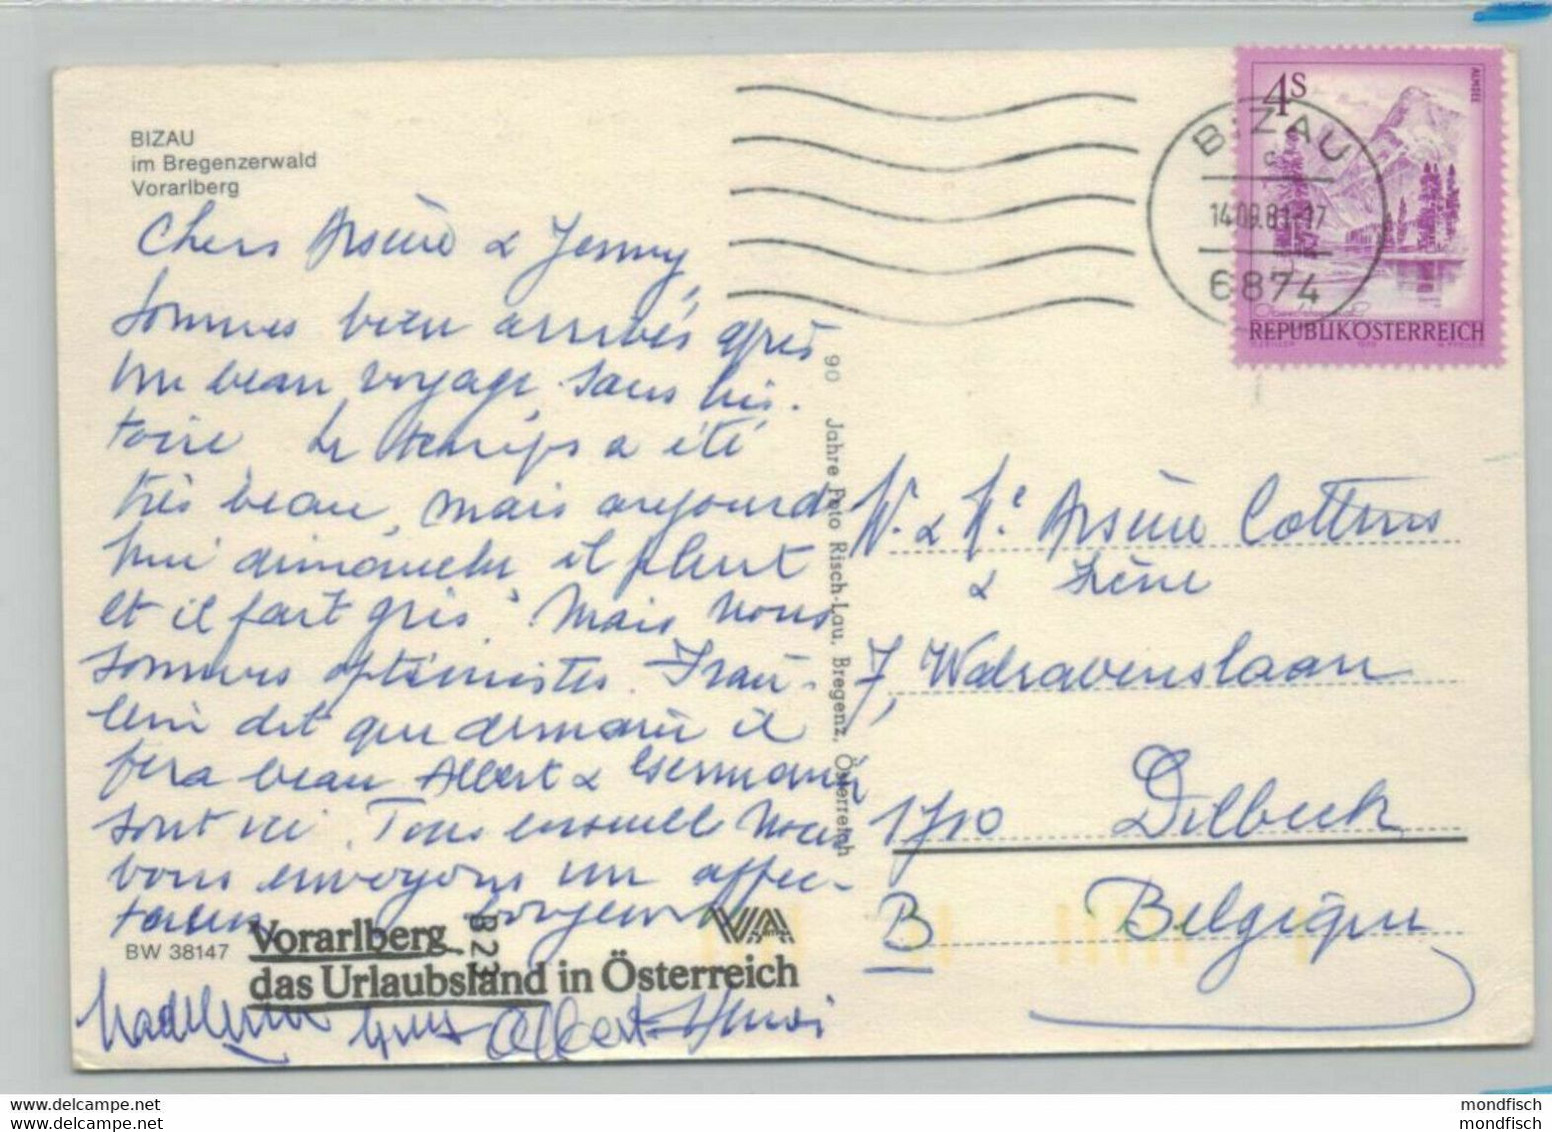 BIZAU
im Bregenzerwald
Vorarlberg
Chers Arsène & Jenny,
Sommes bien arrivés après
un beau voyage sans his-
toire Le temps a été
très beau, mais aujourd
hui dimanche il pleut
et il fait gris. Mais nous
sommes optimistes. Fräu-
lein dit que demain il
fera beau Albert &
sont ici. Tous ensemble nous
vous envoyons un affec-
tueux bonjour
BW 38147
Vorarlberg
das Urlaubsland in Österreich
B 23
VA
Madeleine Albert
90 Jahre Foto Risch-Lau, Bregenz, Österreich
BIZAU
c
14.09.81-17
6874
4S
ALMSEE
REPUBLIK ÖSTERREICH
M. & Me Arsène Cottens
& Irène
7, Walravenslaan
1710 Dilbeek
B Belgique
delcampe.net
mondfisch
delcampe.net
mondfisch